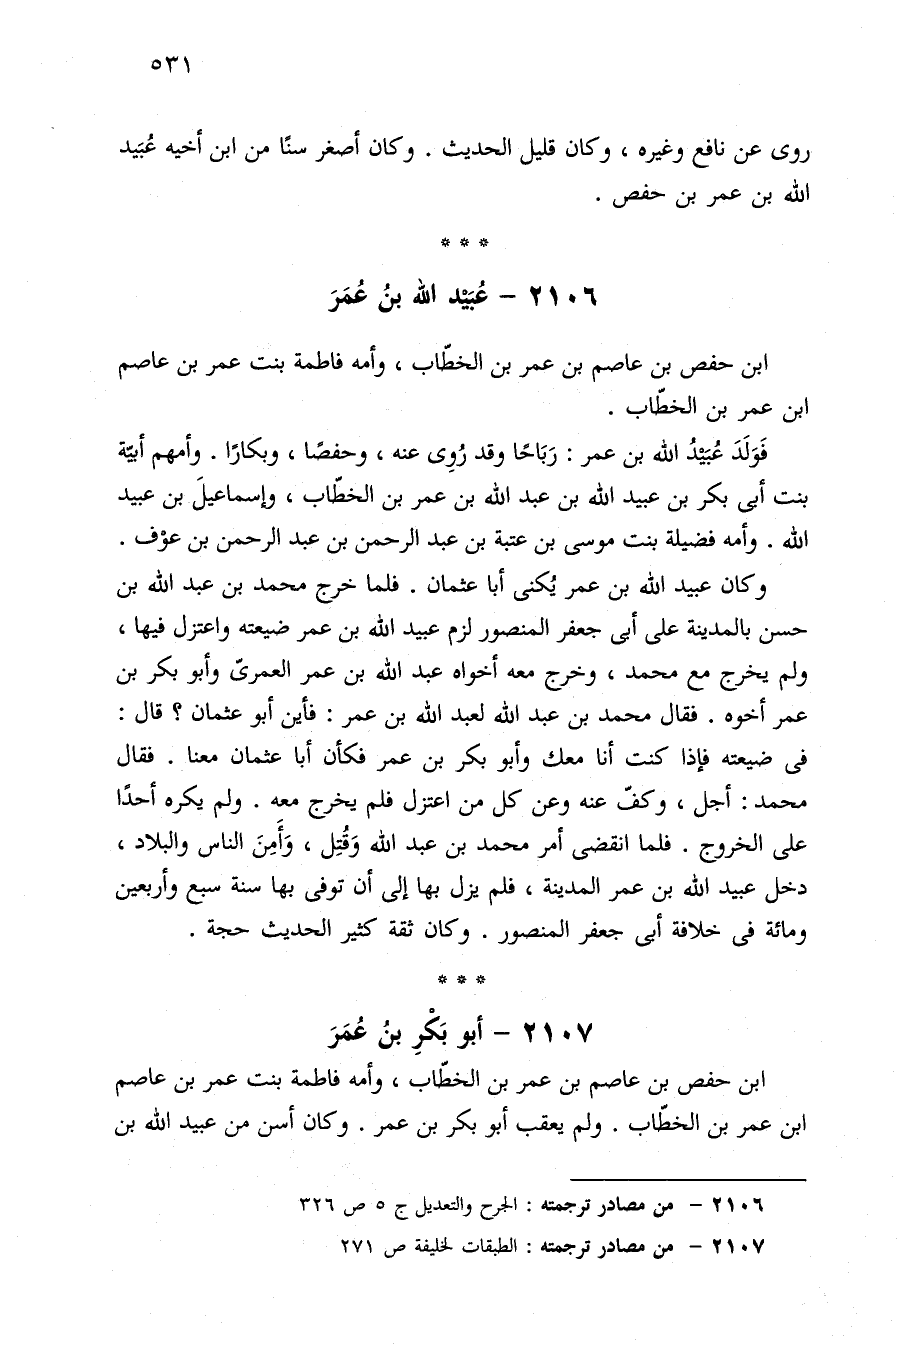 ٥٣١
روى عن نافع وغيره ، وكان قليل الحديث . وكان أصغر سنًا من ابن أخيه عُبَيد
الله بن عمر بن حفص .
* * *
٢١٠٦ – عُبَيْد الله بنُ عُمَرَ
ابن حفص بن عاصم بن عمر بن الخطّاب ، وأمه فاطمة بنت عمر بن عاصم
ابن عمر بن الخطّاب .
فَوَلَدَ عُبَيْدُ الله بن عمر : رَبَاحًا وقد رُوِى عنه ، وحفصًا ، وبكارًا . وأمهم أبيّة
بنت أبى بكر بن عبيد الله بن عبد الله بن عمر بن الخطّاب ، وإسماعيلَ بن عبيد
الله . وأمه فضيلة بنت موسى بن عتبة بن عبد الرحمن بن عبد الرحمن بن عوْف .
وكان عبيد الله بن عمر يُكنى أبا عثمان . فلما خرج محمد بن عبد الله بن
حسن بالمدينة على أبى جعفر المنصور لزم عبيد الله بن عمر ضيعته واعتزل فيها ،
ولم يخرج مع محمد ، وخرج معه أخواه عبد الله بن عمر العمرىّ وأبو بكر بن
عمر أخوه . فقال محمد بن عبد الله لعبد الله بن عمر : فأين أبو عثمان ؟ قال :
فى ضيعته فإذا كنت أنا معك وأبو بكر بن عمر فكأن أبا عثمان معنا . فقال
محمد : أجل ، وكفّ عنه وعن كل من اعتزل فلم يخرج معه . ولم يكره أحدًا
على الخروج . فلما انقضى أمر محمد بن عبد الله وَقُتِل ، وَأَمِنَ الناس والبلاد ،
دخل عبيد الله بن عمر المدينة ، فلم يزل بها إلى أن توفى بها سنة سبع وأربعين
ومائة فى خلافة أبى جعفر المنصور . وكان ثقة كثير الحديث حجة .
* * *
٢١٠٧ – أبو بَكْرِ بنُ عُمَرَ
ابن حفص بن عاصم بن عمر بن الخطّاب ، وأمه فاطمة بنت عمر بن عاصم
ابن عمر بن الخطّاب . ولم يعقب أبو بكر بن عمر . وكان أسن من عبيد الله بن
٢١٠٦ – من مصادر ترجمته : الجرح والتعديل ج ٥ ص ٣٢٦
٢١٠٧ – من مصادر ترجمته : الطبقات لخليفة ص ٢٧١